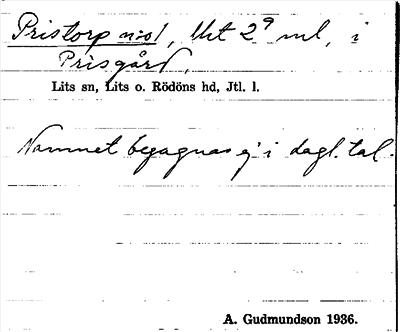 Pristorp n:o 1, Mt 2⁹ ml, i
Prisgård,
Lits sn, Lits o. Rödöns hd, Jtl. l.
Namnet begagnas ej i dagl. tal.
A. Gudmundson 1936.